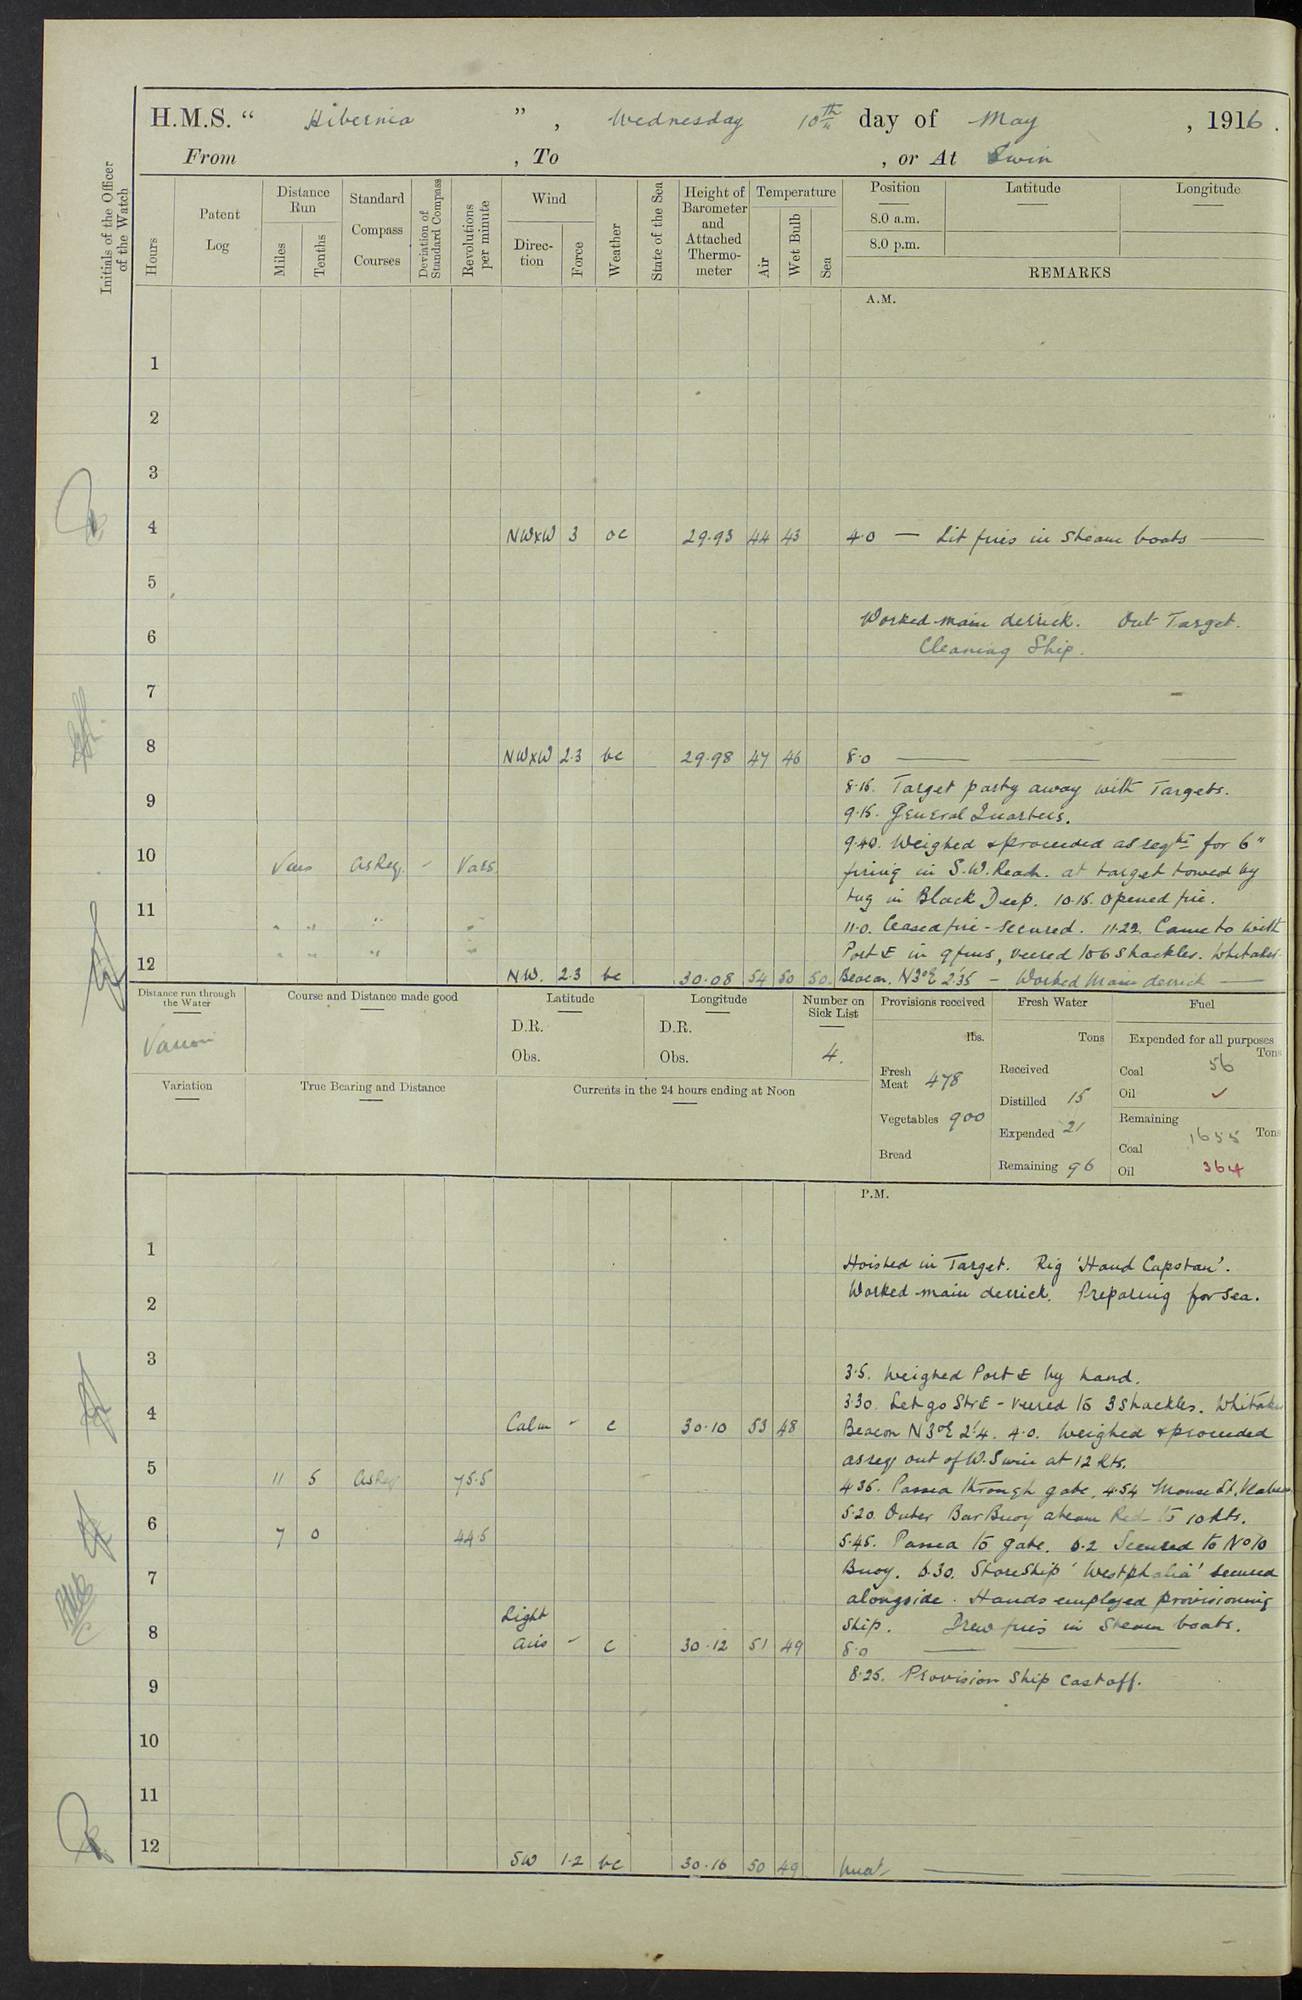 H.M.S. “ Hibernia ” , Wednesday 10th day of May , 1916.
From , To , or At Swin
Initials of the Officer of the Watch
Hours
Patent Log
Distance Run
Miles
Tenths
Standard Compass Courses
Deviation of Standard Compass
Revolutions per minute
Wind
Direction
Force
Weather
State of the Sea
Height of Barometer and Attached Thermometer
Temperature
Air
Wet Bulb
Sea
Position
8.0 a.m.
8.0 p.m.
Latitude
Longitude
REMARKS
A.M.
1
2
3
4 NWxW 3 oc 29.93 44 43 4.0 — Lit fires in Steam boats —
5
Worked main derrick. Out Target.
6
Cleaning Ship.
7
8 NWxW 2.3 bc 29.98 47 46 8.0 —
8.15. Target party away with Targets.
9
9.15. General Quarters.
9.40. Weighed & proceeded as reqte for 6"
10 Vars AsReq. - Vars. firing in S.W. Reach. at target towed by
tug in Black Deep. 10.15. Opened fire.
11 " " " " 11.0. Ceased fire - secured. 11.22. Came to with
" " " " Port £ in 9 fms, veered to 6 shackles. Whitaker
12 NW. 2.3 bc 30.08 54 50 50. Beacon. N3°E 2.'35 — Worked Main derrick —
Distance run through the Water
Various
Course and Distance made good
Latitude
D.R.
Obs.
Longitude
D.R.
Obs.
Number on Sick List
4.
Provisions received
lbs.
Fresh Meat 478
Vegetables 900
Bread
Fresh Water
Tons
Received
Distilled 15
Expended 21
Remaining 96
Fuel
Expended for all purposes
Tons
Coal 56
Oil ✓
Remaining
Tons
Coal 1655
Oil 364
Variation
True Bearing and Distance
Currents in the 24 hours ending at Noon
P.M.
1
Hoisted in Target. Rig 'Hand Capstan'.
2 Worked main derrick. Preparing for Sea.
3
3.5. Weighed Port £ by hand.
3.30. Let go St£ - veered to 3 shackles. Whitaker
4 Calm - c 30.10 53 48 Beacon N3°E 2.'4. 4.0. Weighed & proceeded
as req out of W. Swin at 12 Kts.
5 11 5 AsReq 75.5 4.35. Passed through gate. 4.54 Mouse Lt. Ves abeam
5.20. Outer Bar Buoy abeam Red to 10 Kts.
6 7 0 44.5 5.45. Passed to gate. 6.2 Secured to No 10
Buoy. 6.30. Storeship 'Westphalia' secured
7
alongside. Hands employed provisioning
8 Light airs - c 30.12 51 49 Ship. Drew fires in Steam boats.
8.0 —
8.25. Provision Ship cast off.
9
10
11
12 SW 1.2 bc 30.16 50 49